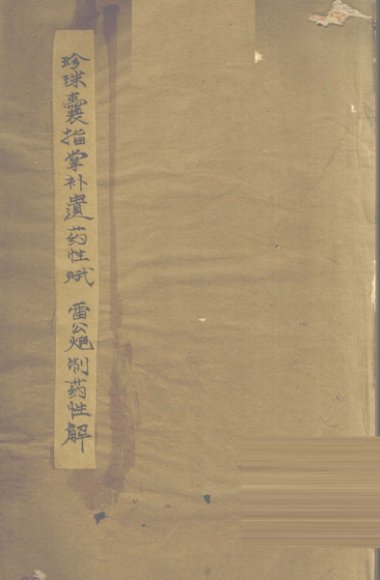 珍珠囊指掌补遗药性赋 雷公炮制药性解